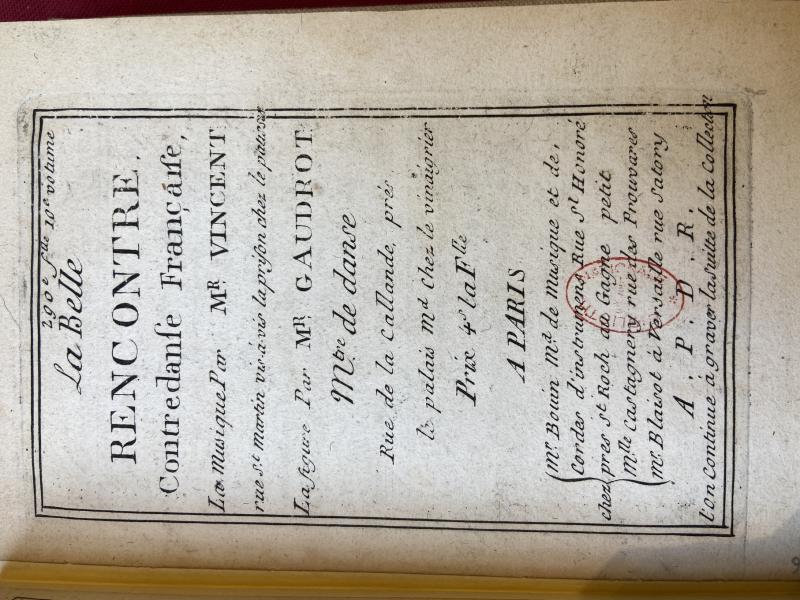 290e flle 10e volume
La Belle
RENCONTRE.
Contredanſe Françáiſe,
La Musique Par MR VINCENT
rue st martin vis-a-vis la priſon chez le pauſsier
La figure Par MR GAUDROT
Mtre de danse
Rue de la Callande, prés
le palais md chez le vinaigrier
Prix 4s la Flle
A PARIS
Mr Bouin Md de Musique et de,
Cordes d'instrumens Rue st Honoré
chez pres st Roch au Gagne petit
Mlle Castagnery rue des Prouvares
mr. Blaisot á Versaille rue Satory
A. P. D. R.
l'on Continue á graver la suitte de la Collection